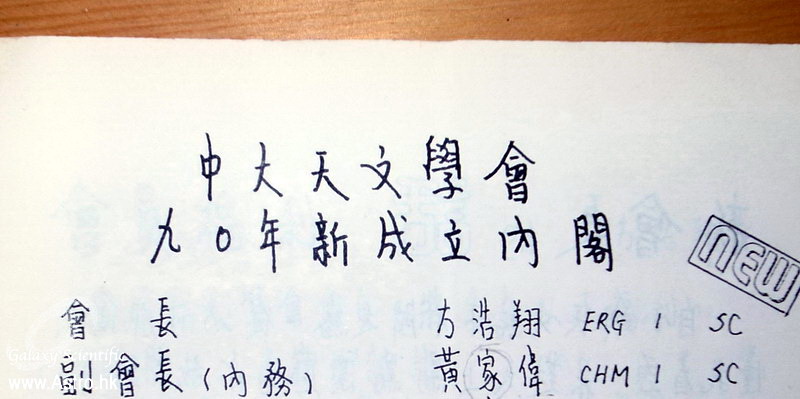 中大天文學會
九0年新成立內閣
NEW
會 長 方浩翔 ERG 1 SC
副會長(內務) 黃家偉 CHM 1 SC
Galaxy Scientific
www.Astro.hk